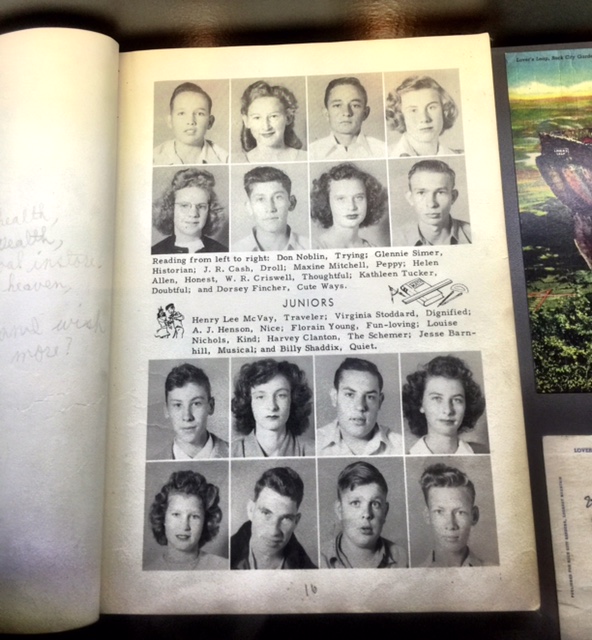 health,
wealth,
heaven,
more?
Reading from left to right: Don Noblin, Trying; Glennie Simer,
Historian; J. R. Cash, Droll; Maxine Mitchell, Peppy; Helen
Allen, Honest, W. R. Criswell, Thoughtful; Kathleen Tucker,
Doubtful; and Dorsey Fincher, Cute Ways.
JUNIORS
Henry Lee McVay, Traveler; Virginia Stoddard, Dignified;
A. J. Henson, Nice; Florain Young, Fun-loving; Louise
Nichols, Kind; Harvey Clanton, The Schemer; Jesse Barn-
hill, Musical; and Billy Shaddix, Quiet.
16
Lover's Leap, Rock City